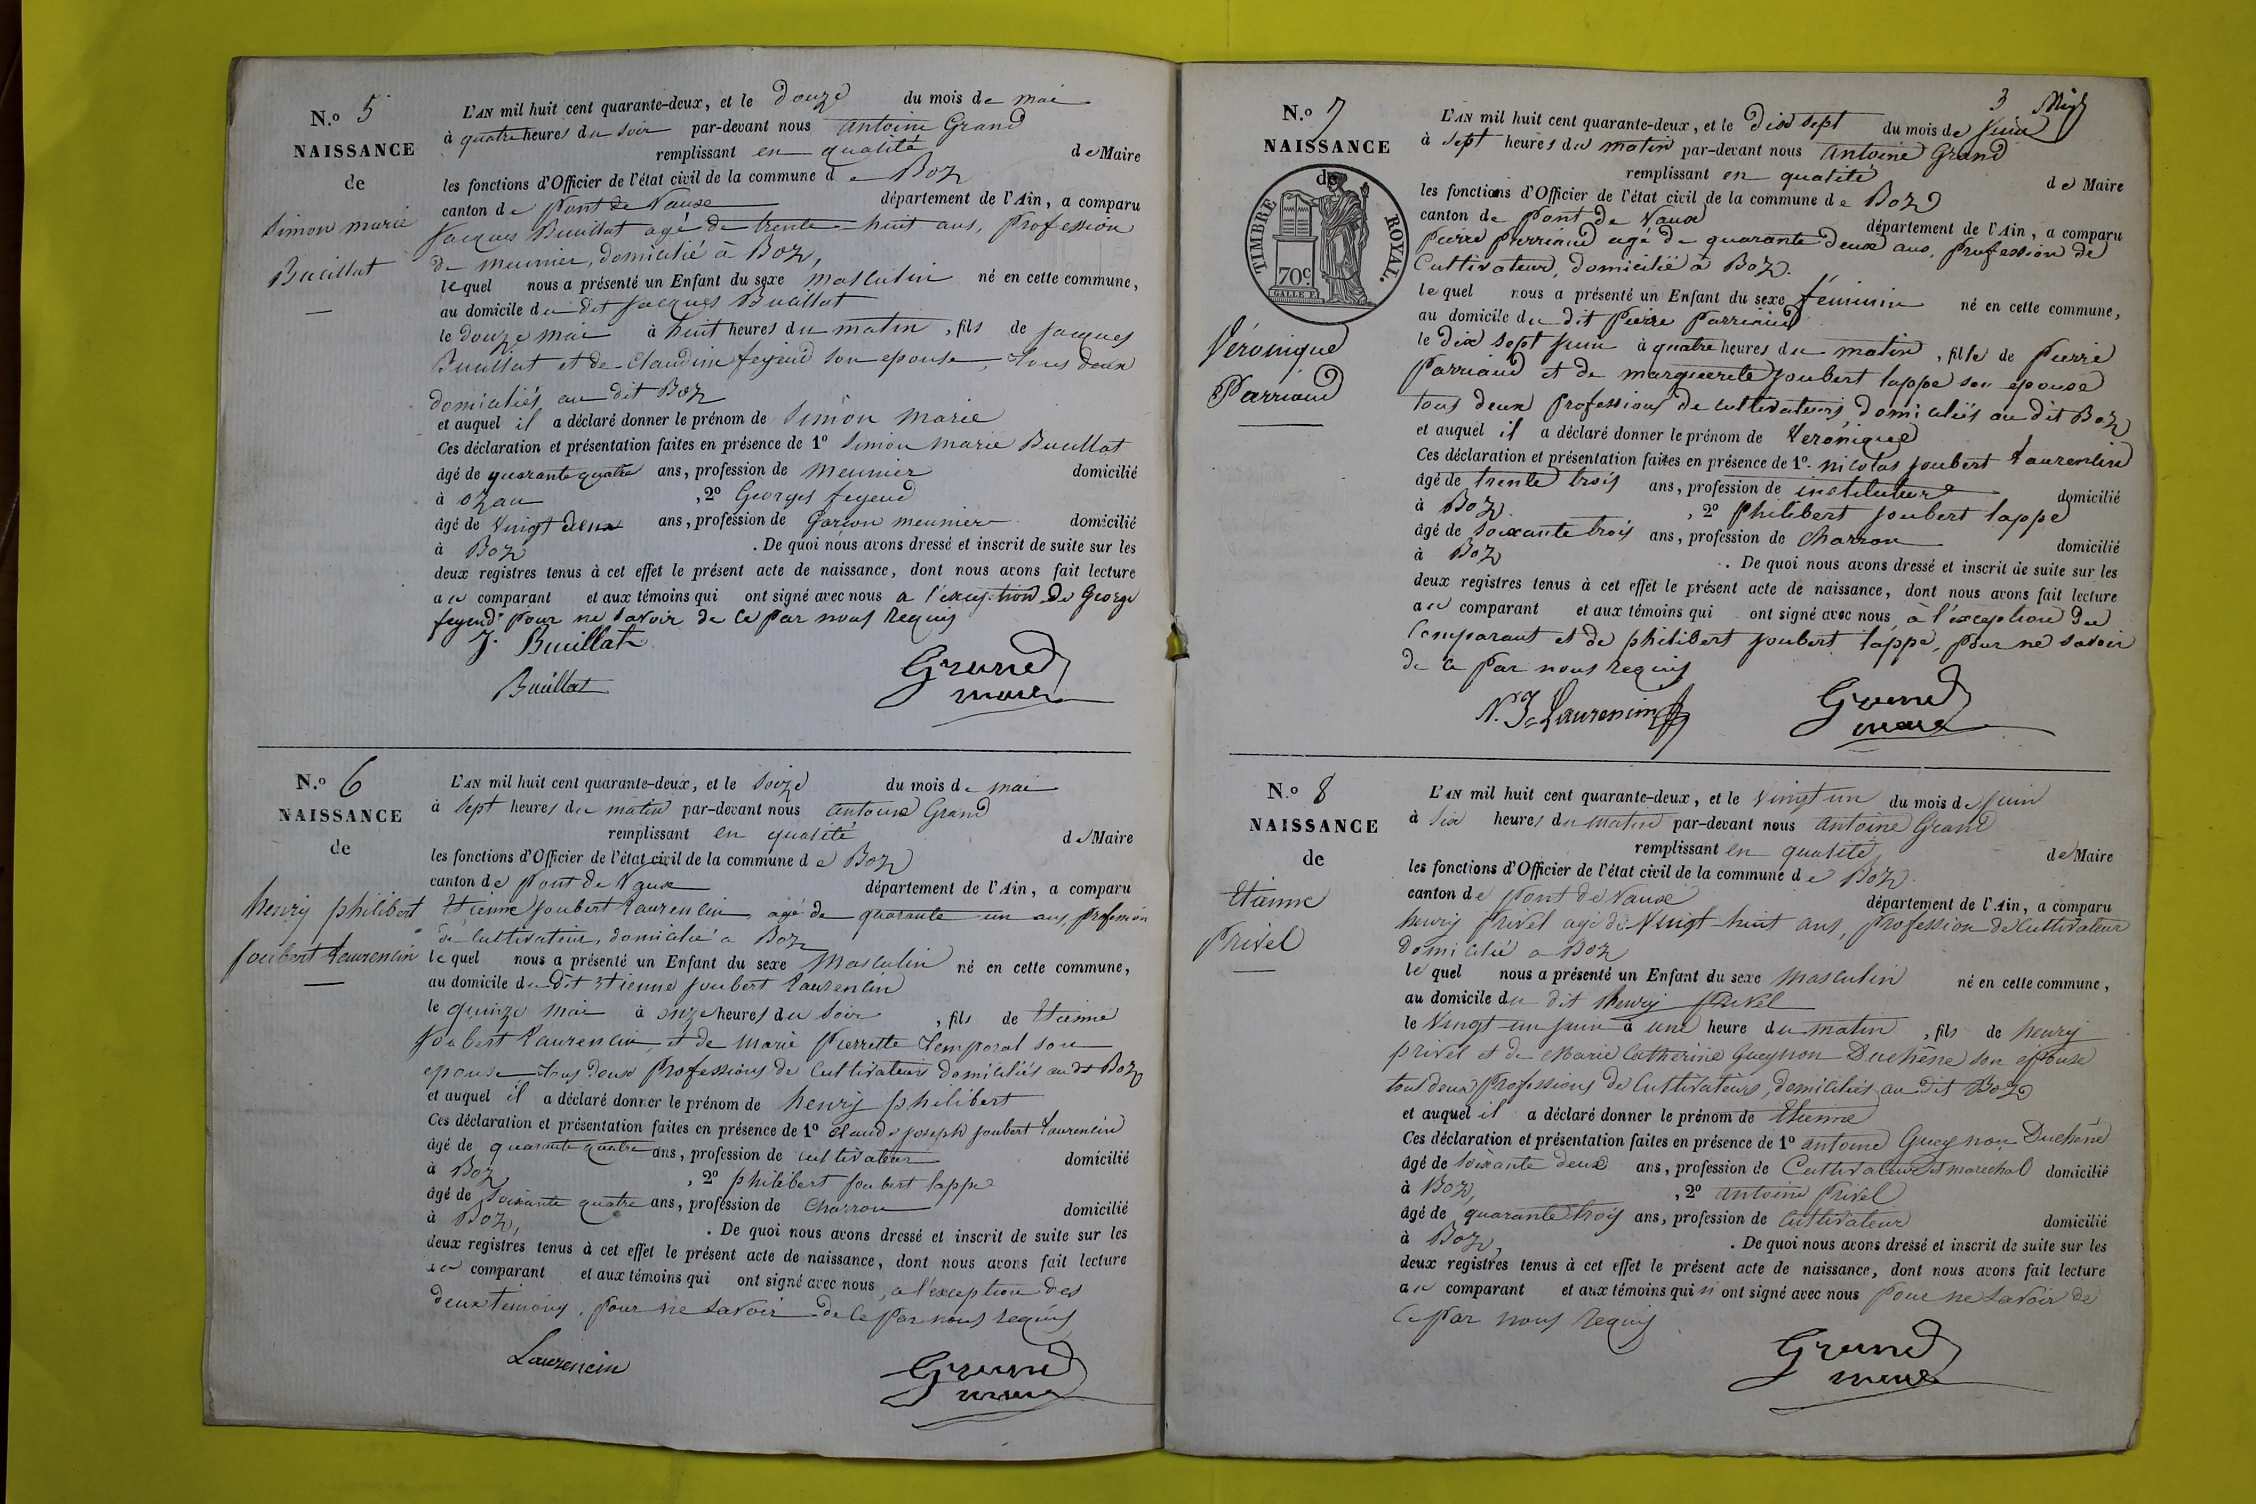 N.º 5
NAISSANCE
de
Simon marie
Buiillat
L'AN mil huit cent quarante-deux, et le douze du mois de mai
à quatre heures du soir par-devant nous antoine Grand
remplissant en qualité de Maire
les fonctions d'Officier de l'état civil de la commune de Boz
canton de Pont de Vaux département de l'Ain, a comparu
Jacques Buiillat agé de trente-huit ans, Profession
de meunier, domicilié à Boz,
lequel nous a présenté un Enfant du sexe masculin né en cette commune,
au domicile du dit Jacques Buiillat
le douze mai à huit heures du matin, fils de Jacques
Buiillat et de Claudine feyeud son epouse, tous deux
domiciliés au dit Boz
et auquel il a déclaré donner le prénom de Simon marie
Ces déclaration et présentation faites en présence de 1º Simon marie Buiillat
âgé de quarante quatre ans, profession de meunier domicilié
à ozan , 2º Georges feyeud
âgé de vingt deux ans, profession de Garcon meunier domicilié
à Boz . De quoi nous avons dressé et inscrit de suite sur les
deux registres tenus à cet effet le présent acte de naissance, dont nous avons fait lecture
au comparant et aux témoins qui ont signé avec nous a l'exception de George
feyeud pour ne savoir de ce par nous requis
J. Buiillat
Buiillat
Grand
maire
N.º 6
NAISSANCE
de
henry philibert
Joubert Laurencin
L'AN mil huit cent quarante-deux, et le seize du mois de mai
à sept heures du matin par-devant nous antoine Grand
remplissant en qualité de Maire
les fonctions d'Officier de l'état civil de la commune de Boz
canton de Pont de Vaux département de l'Ain, a comparu
Etienne Joubert Laurencin, agé de quarante un ans, profession
de Cultivateur, domicilié a Boz
lequel nous a présenté un Enfant du sexe masculin né en cette commune,
au domicile du dit Etienne Joubert Laurencin
le quinze mai à onze heures du soir, fils de Etienne
Joubert Laurencin, et de marie Pierrette Temporal son
epouse tous deux Professions de Cultivateurs domiciliés au dt Boz
et auquel il a déclaré donner le prénom de henry philibert
Ces déclaration et présentation faites en présence de 1º Claude joseph Joubert Laurencin
âgé de quarante quatre ans, profession de cultivateur domicilié
à Boz , 2º philibert Joubert lappe
âgé de soixante quatre ans, profession de Charron domicilié
à Boz, . De quoi nous avons dressé et inscrit de suite sur les
deux registres tenus à cet effet le présent acte de naissance, dont nous avons fait lecture
au comparant et aux témoins qui ont signé avec nous, a l'exception des
deux temoins, Pour ne savoir de ce Par nous requis
Laurencin
Grand
maire
3
N.º 7
NAISSANCE
de
TIMBRE ROYAL.
70c
Véronique
Parriaud
L'AN mil huit cent quarante-deux, et le dix sept du mois de Juin
à sept heures du matin par-devant nous antoine Grand
remplissant en qualité de Maire
les fonctions d'Officier de l'état civil de la commune de Boz
canton de Pont de Vaux département de l'Ain, a comparu
Pierre Parriaud agé de quarante deux ans, Profession de
Cultivateur, domicilié à Boz.
lequel nous a présenté un Enfant du sexe féminin né en cette commune,
au domicile du dit Pierre Parriaud
le dix sept Juin à quatre heures du matin, fille de Pierre
Parriaud et de marguerite Joubert lappe son epouse
tous deux Professions de cultivateurs, domiciliés au dit Boz
et auquel il a déclaré donner le prénom de Veronique
Ces déclaration et présentation faites en présence de 1º. nicolas Joubert Laurencin
âgé de trente trois ans, profession de instituteur domicilié
à Boz. , 2º Philibert Joubert lappe
âgé de soixante trois ans, profession de Charron domicilié
à Boz . De quoi nous avons dressé et inscrit de suite sur les
deux registres tenus à cet effet le présent acte de naissance, dont nous avons fait lecture
au comparant et aux témoins qui ont signé avec nous, à l'exception du
Comparant et de philibert Joubert lappe, pour ne savoir
de ce Par nous requis
N. J. Laurencin
Grand
maire
N.º 8
NAISSANCE
de
Etienne
Privel
L'AN mil huit cent quarante-deux, et le Vingt un du mois de Juin
à six heures du matin par-devant nous antoine Grand
remplissant en qualité de Maire
les fonctions d'Officier de l'état civil de la commune de Boz
canton de Pont de Vaux département de l'Ain, a comparu
henry Privel agé de Vingt-huit ans, Profession de Cultivateur
domicilié a Boz
lequel nous a présenté un Enfant du sexe masculin né en cette commune,
au domicile du dit henry Privel
le Vingt un Juin à une heure du matin, fils de henry
privel et de Marie Catherine Gueynon Duchêne son epouse
tous deux Professions de Cultivateurs, domiciliés au dit Boz
et auquel il a déclaré donner le prénom de Etienne
Ces déclaration et présentation faites en présence de 1º antoine Gueynon Duchêne
âgé de soixante deux ans, profession de Cultivateur et marechal domicilié
à Boz, , 2º antoine Privel
âgé de quarante trois ans, profession de Cultivateur domicilié
à Boz, . De quoi nous avons dressé et inscrit de suite sur les
deux registres tenus à cet effet le présent acte de naissance, dont nous avons fait lecture
au comparant et aux témoins qui n ont signé avec nous Pour ne savoir de
ce Par nous requis
Grand
maire